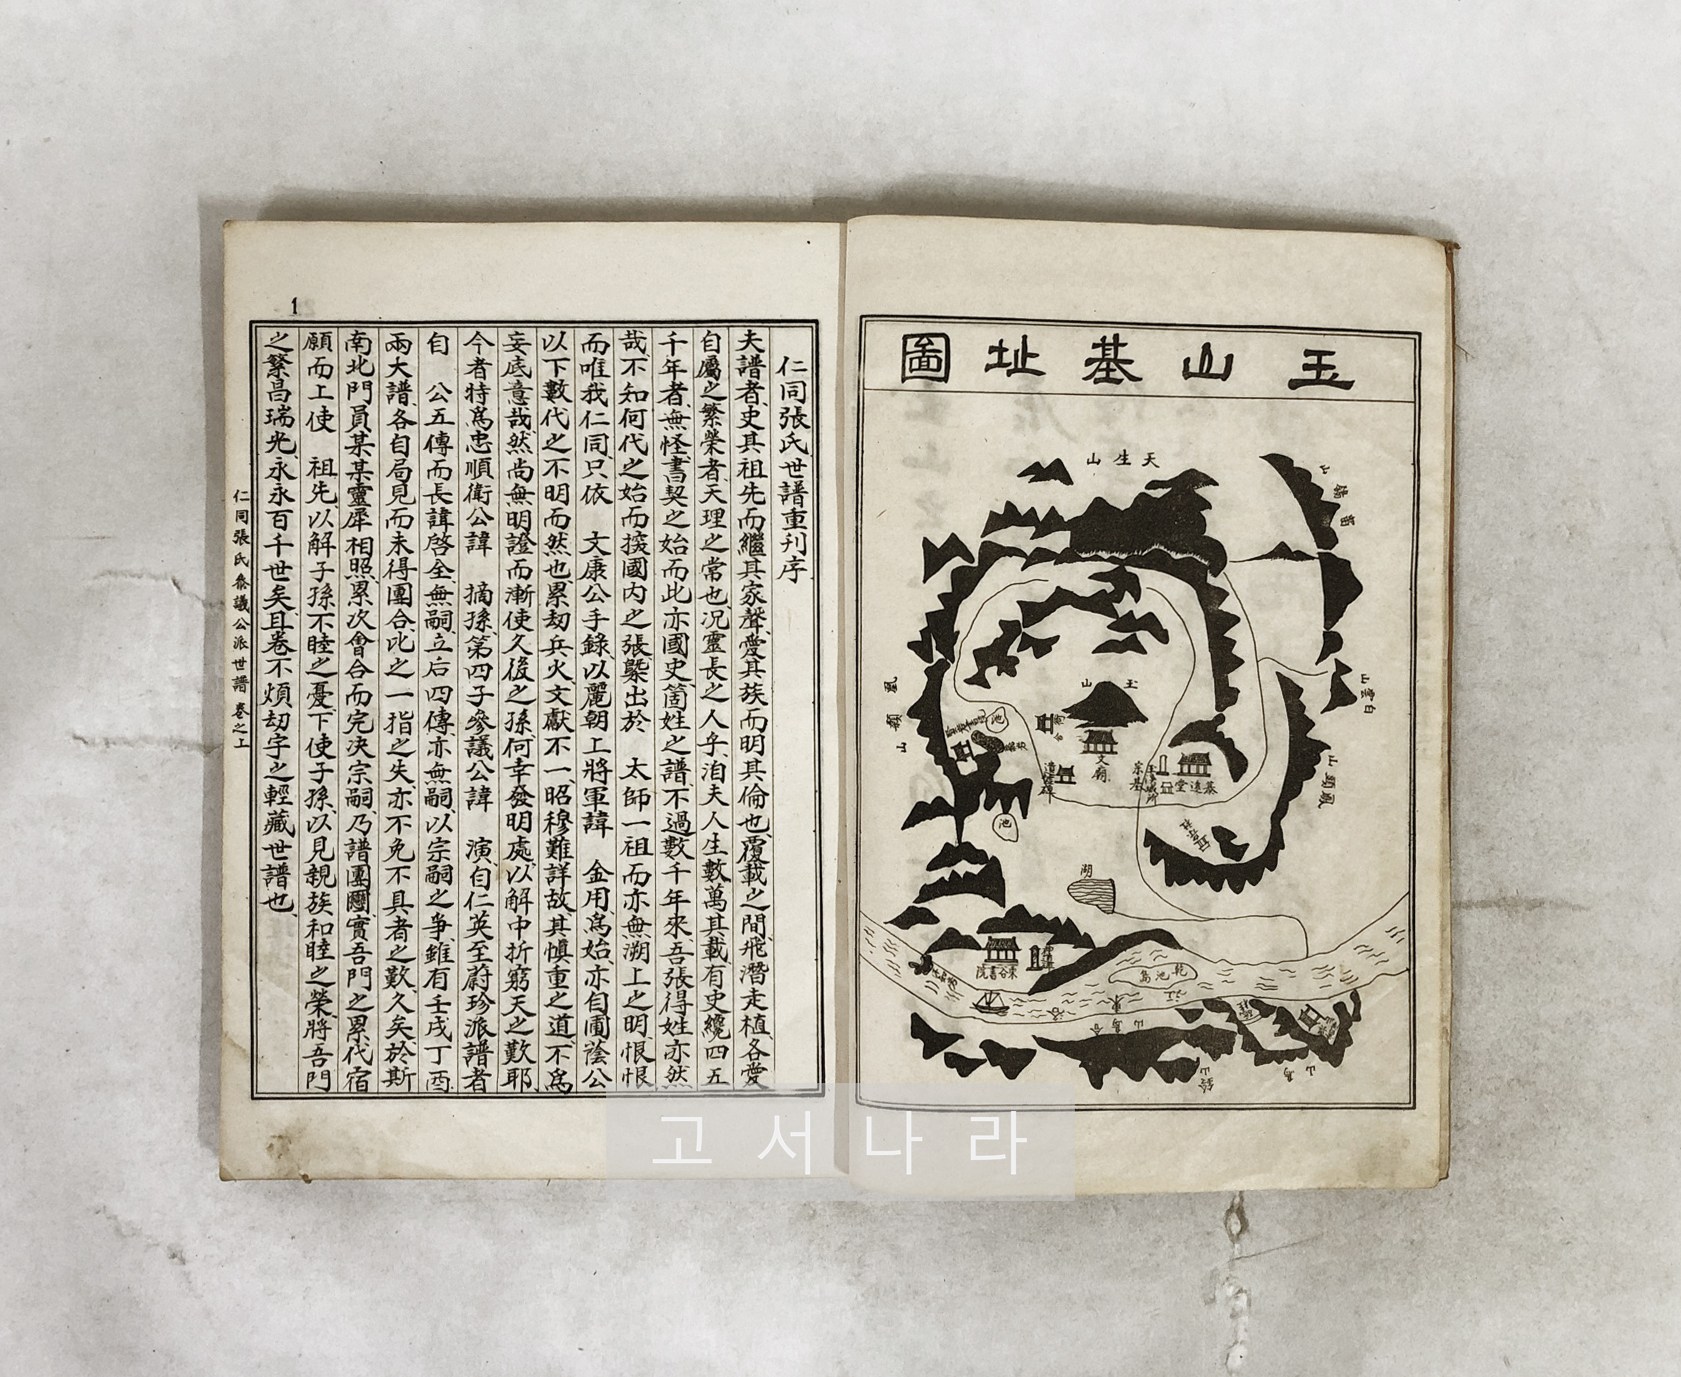 玉山基址圖
天生山
玉山
文廟
池
池
湖
東谷書院
乾池島
白雲山
鳳頭山
仁同張氏世譜重刊序
夫譜者、史其祖先而繼其家聲、愛其族而明其倫也、覆載之間、飛潛走植、各愛
自屬之繁榮者、天理之常也、况靈長之人乎、洎夫人生數萬、其載有史纔四五
千年者、無怪、書契之始而此亦國史、箇姓之譜、不過數千年來、吾張得姓亦然
哉、不知何代之始而按國內之張槩出於 太師一祖而亦無溯上之明、恨恨
而唯我仁同、只依 文康公手錄以麗朝上將軍諱 金用爲始、亦自圃蔭公
以下數代之不明而然也、累刼兵火文獻不一、昭穆難詳故、其愼重之道、不爲
妄底意哉、然尚無明證而漸使久後之孫、何幸發明處、以解中折窮天之歎耶、
今者特爲忠順衛公諱 摘孫第四子參議公諱 演、自仁英至蔚珍派譜者
自 公五傳而長諱啓全、無嗣、立后四傳、亦無嗣、以宗嗣之爭、雖有壬戌丁酉
兩大譜、各自局見而未得團合、此之一指之失、亦不免不具者之歎、久矣、於斯
南北門員某某靈犀相照、累次會合而完决宗嗣、乃譜團圞、實吾門之累代宿
願而上使 祖先、以解子孫不睦之憂、下使子孫、以見親族和睦之榮、將吾門
之繁昌瑞光、永永百千世矣、且卷不煩刼字之輕藏世譜也、
仁同張氏參議公派世譜 卷之上
1
고서나라